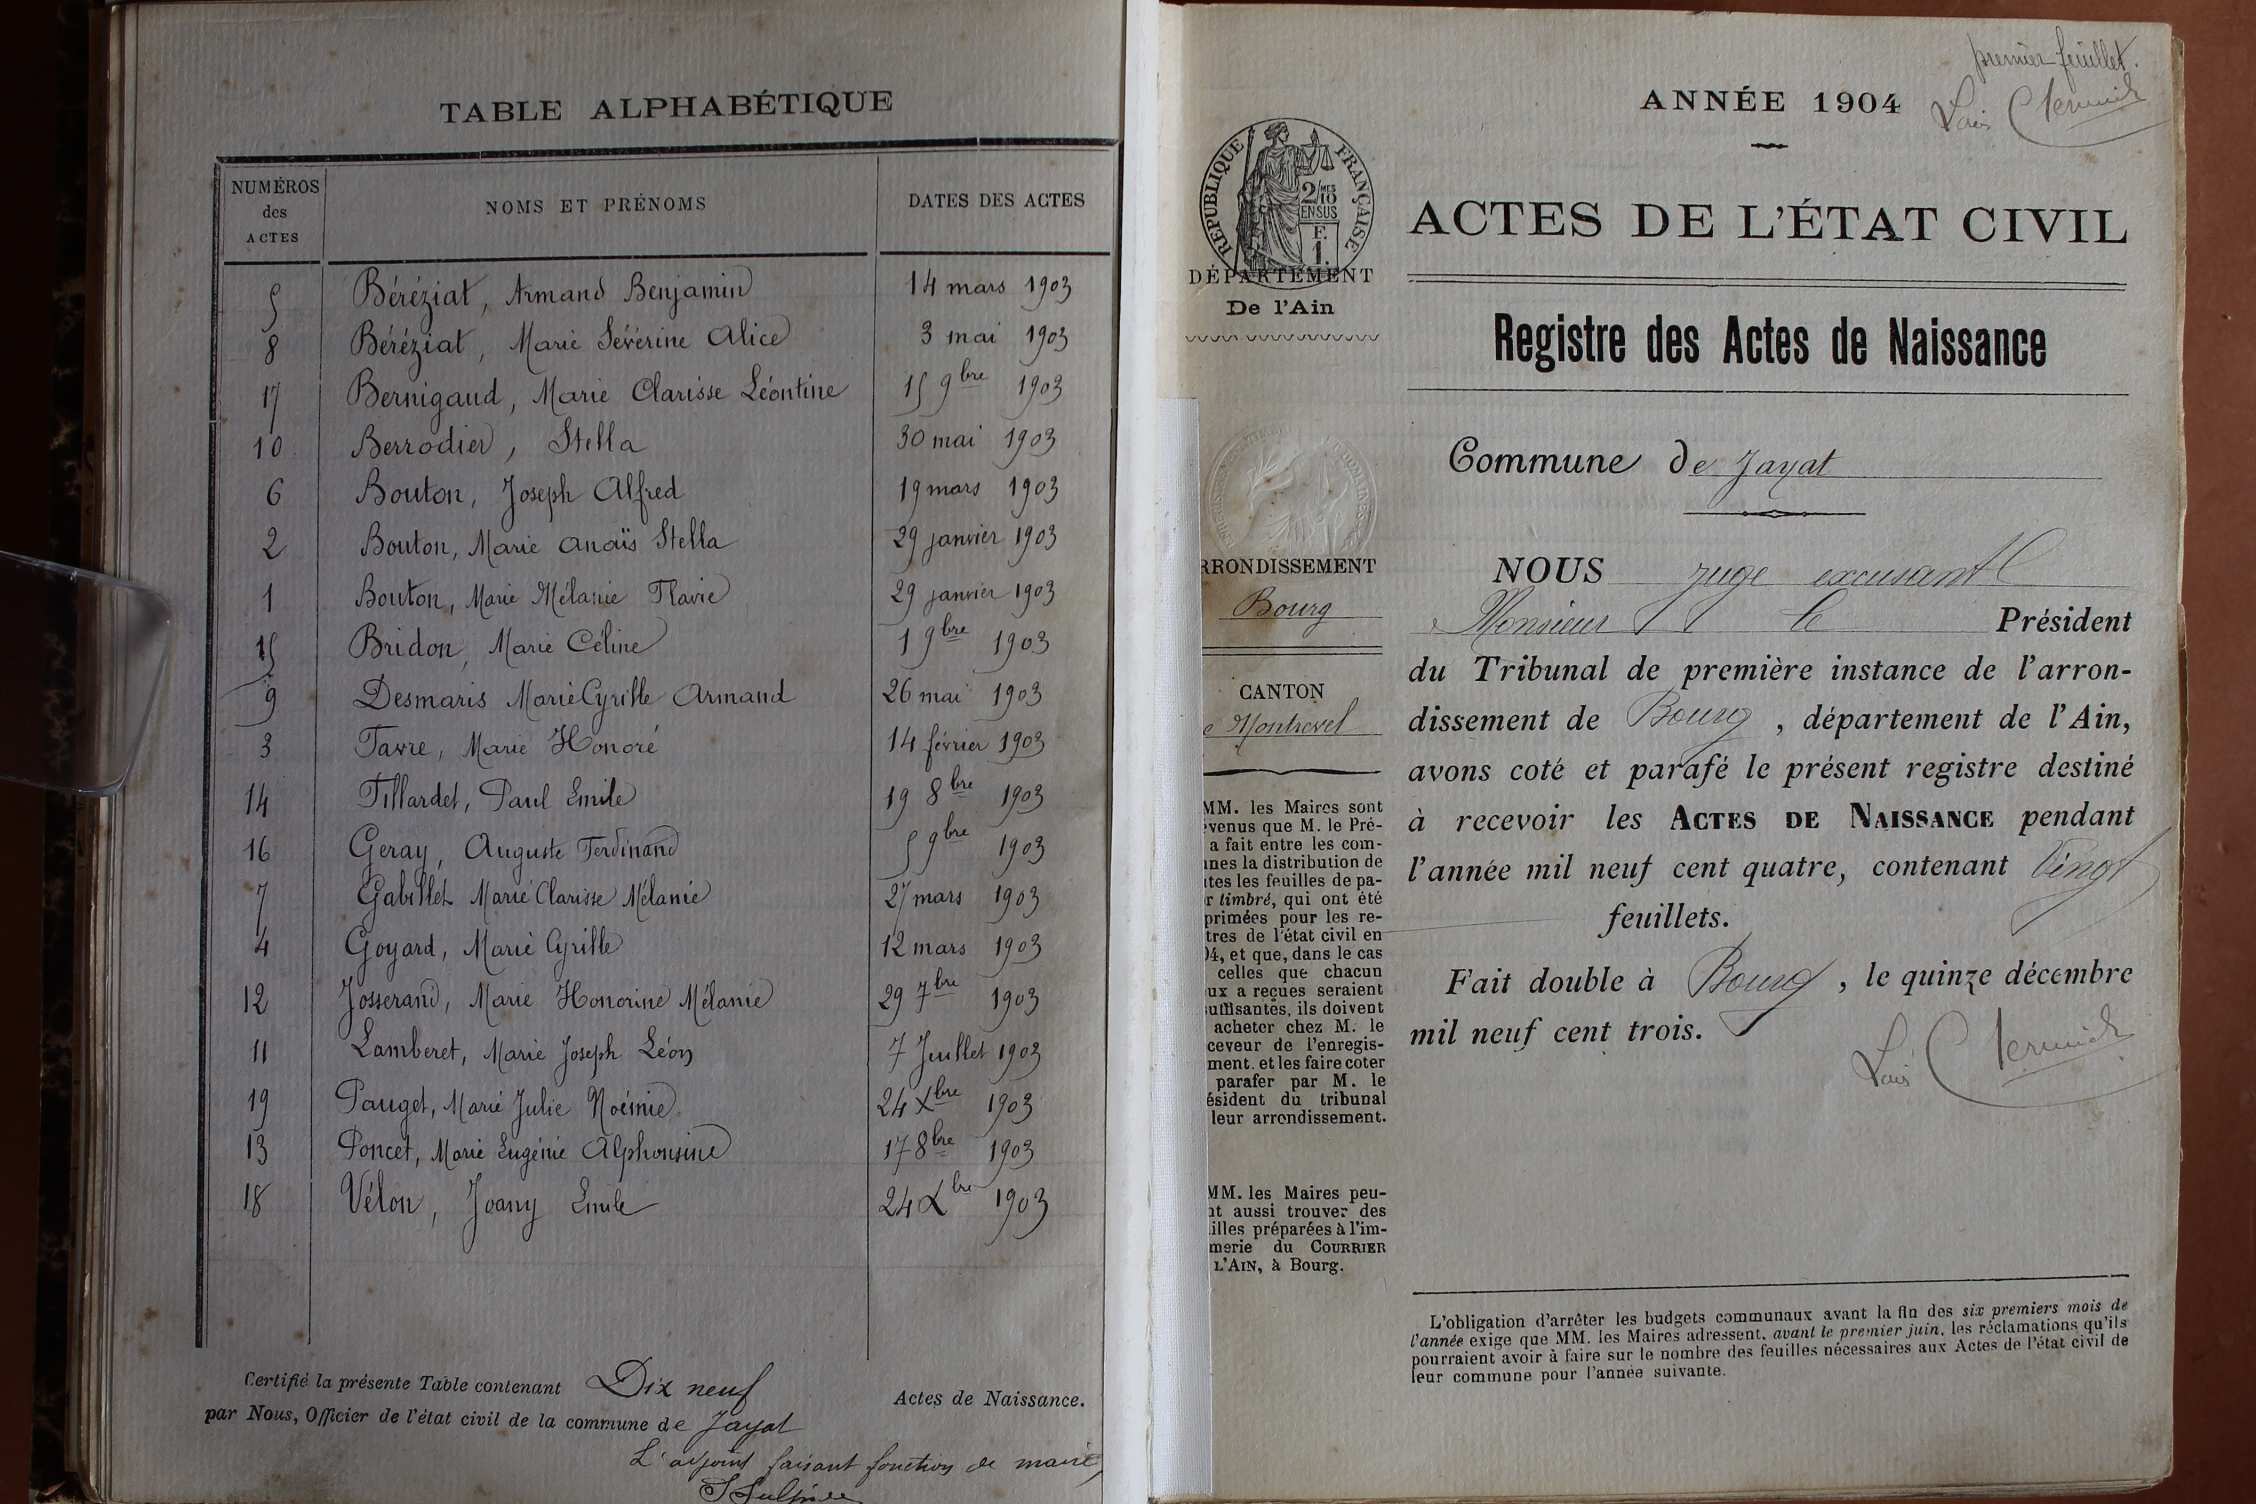 TABLE ALPHABÉTIQUE
NUMÉROS des ACTES
NOMS ET PRÉNOMS
DATES DES ACTES
5 Béréziat, Armand Benjamin 14 mars 1903
8 Béréziat, Marie Sévérine Alice 3 mai 1903
17 Bernigaud, Marie Clarisse Léontine 15 9bre 1903
10 Berrodier, Stella 30 mai 1903
6 Bouton, Joseph Alfred 19 mars 1903
2 Bouton, Marie Anaïs Stella 29 janvier 1903
1 Bouton, Marie Mélanie Flavie 29 janvier 1903
15 Bridon, Marie Céline 1 9bre 1903
9 Desmaris Marie Cyrille Armand 26 mai 1903
3 Favre, Marie Honoré 14 février 1903
14 Fillardet, Paul Emile 19 8bre 1903
16 Geray, Auguste Ferdinand 5 9bre 1903
7 Gabillet Marie Clarisse Mélanie 27 mars 1903
4 Goyard, Marie Cyrille 12 mars 1903
12 Josserand, Marie Honorine Mélanie 29 7bre 1903
11 Lamberet, Marie Joseph Léon 7 Juillet 1903
19 Pauget, Marie Julie Noémie 24 Xbre 1903
13 Poncet, Marie Eugénie Alphonsine 17 8bre 1903
18 Vélon, Joany Emile 24 Xbre 1903
Certifié la présente Table contenant Dix neuf Actes de Naissance.
par Nous, Officier de l'état civil de la commune de Jayat
L'adjoint faisant fonction de maire,
premier feuillet.
ANNÉE 1904
RÉPUBLIQUE FRANÇAISE
2/10MES
EN SUS
F.
1.
ACTES DE L'ÉTAT CIVIL
DÉPARTEMENT
De l'Ain
Registre des Actes de Naissance
Commune de Jayat
RRONDISSEMENT
Bourg
CANTON
e Montrevel
MM. les Maires sont
évenus que M. le Pré-
a fait entre les com-
unes la distribution de
utes les feuilles de pa-
r timbré, qui ont été
primées pour les re-
tres de l'état civil en
04, et que, dans le cas
celles que chacun
ux a reçues seraient
uffisantes, ils doivent
acheter chez M. le
ceveur de l'enregis-
ment. et les faire coter
parafer par M. le
ésident du tribunal
leur arrondissement.
MM. les Maires peu-
nt aussi trouver des
illes préparées à l'im-
merie du COURRIER
L'AIN, à Bourg.
NOUS juge excusant
Monsieur le Président
du Tribunal de première instance de l'arron-
dissement de Bourg, département de l'Ain,
avons coté et parafé le présent registre destiné
à recevoir les ACTES DE NAISSANCE pendant
l'année mil neuf cent quatre, contenant Vingt
feuillets.
Fait double à Bourg, le quinze décembre
mil neuf cent trois.
L'obligation d'arrêter les budgets communaux avant la fin des six premiers mois de
l'année exige que MM. les Maires adressent, avant le premier juin, les réclamations qu'ils
pourraient avoir à faire sur le nombre des feuilles nécessaires aux Actes de l'état civil de
leur commune pour l'année suivante.